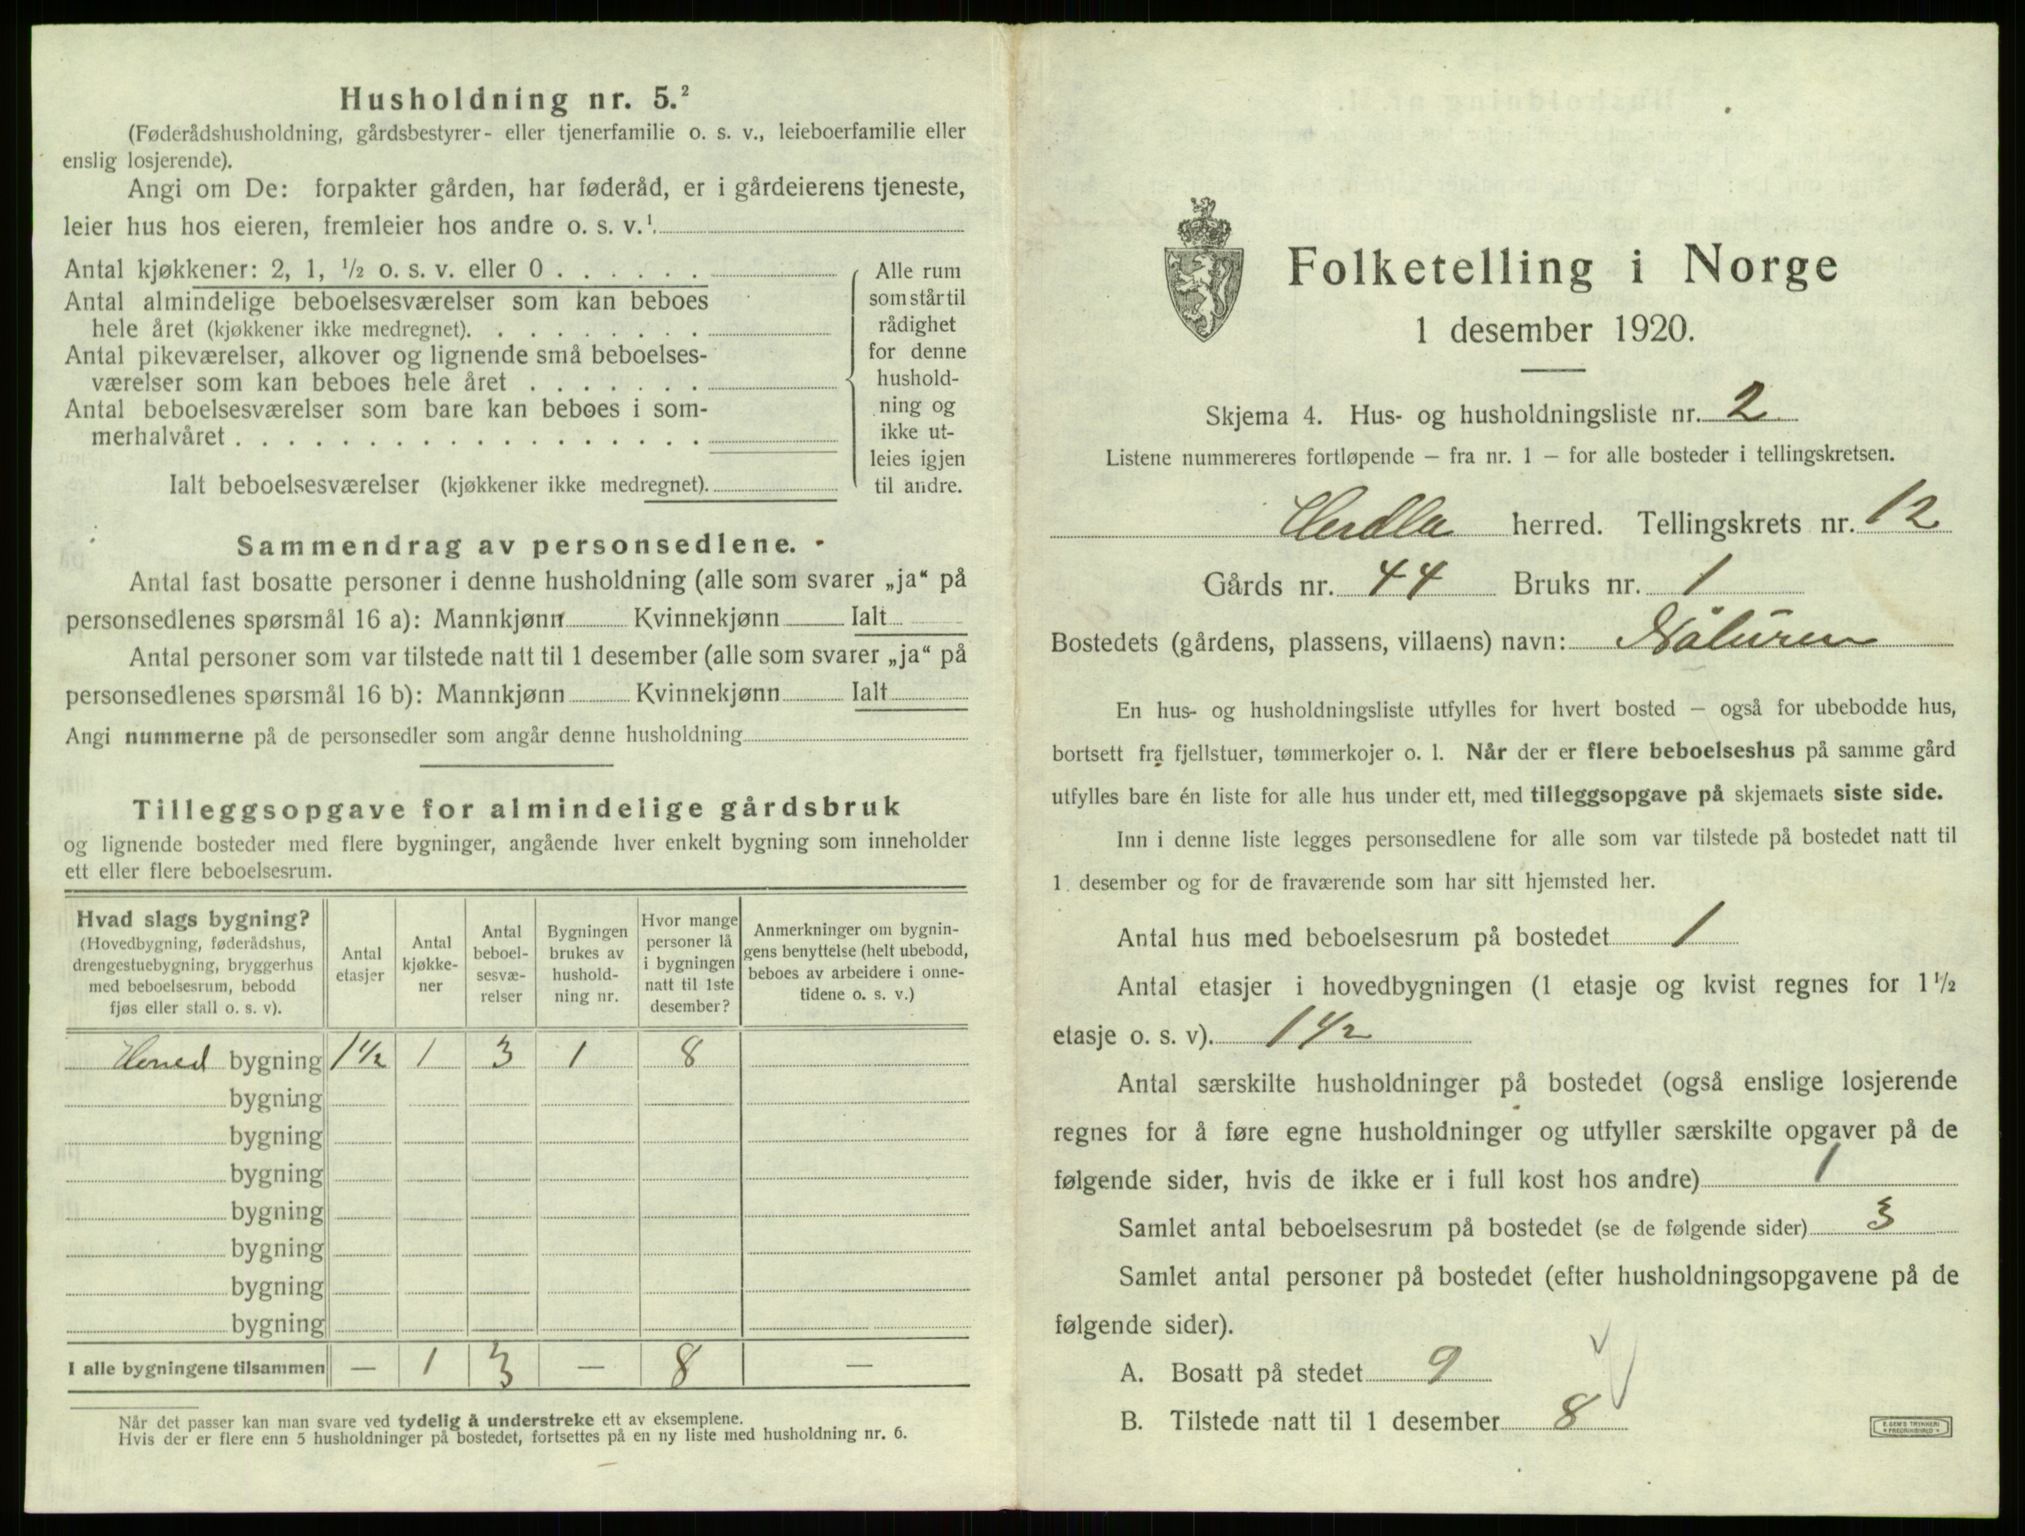 Husholdning nr. 5.²
(Føderådshusholdning, gårdsbestyrer- eller tjenerfamilie o. s. v., leieboerfamilie eller
enslig losjerende).
Angi om De: forpakter gården, har føderåd, er i gårdeierens tjeneste,
leier hus hos eieren, fremleier hos andre o. s. v.¹
Antal kjøkkener: 2, 1, ½ o. s. v. eller 0 . . . . . .
Antal almindelige beboelsesværelser som kan beboes
hele året (kjøkkener ikke medregnet). . . . . . . . .
Antal pikeværelser, alkover og lignende små beboelses-
værelser som kan beboes hele året . . . . . . .
Antal beboelsesværelser som bare kan beboes i som-
merhalvåret . . . . . . . . . . . . . . . . . .
Ialt beboelsesværelser (kjøkkener ikke medregnet).
Alle rum
som står til
rådighet
for denne
hushold-
ning og
ikke ut-
leies igjen
til andre.
Sammendrag av personsedlene.
Antal fast bosatte personer i denne husholdning (alle som svarer „ja“ på
personsedlenes spørsmål 16 a): Mannkjønn Kvinnekjønn Ialt
Antal personer som var tilstede natt til 1 desember (alle som svarer „ja“ på
personsedlenes spørsmål 16 b): Mannkjønn Kvinnekjønn Ialt
Angi nummerne på de personsedler som angår denne husholdning
Tilleggsopgave for almindelige gårdsbruk
og lignende bosteder med flere bygninger, angående hver enkelt bygning som inneholder
ett eller flere beboelsesrum.
Hvad slags bygning?
(Hovedbygning, føderådshus,
drengestuebygning, bryggerhus
med beboelsesrum, bebodd
fjøs eller stall o. s. v).
Antal
etasjer
Antal
kjøkke-
ner
Antal
beboel-
sesvæ-
relser
Bygningen
brukes av
hushold-
ning nr.
Hvor mange
personer lå
i bygningen
natt til 1ste
desember?
Anmerkninger om bygnin-
gens benyttelse (helt ubebodd,
beboes av arbeidere i onne-
tidene o. s. v.)
bygning 1½ 1 3 1 8
bygning
bygning
bygning
bygning
bygning
bygning
bygning
I alle bygningene tilsammen — 1 3 — 8 —
Når det passer kan man svare ved tydelig å understreke ett av eksemplene.
Hvis der er flere enn 5 husholdninger på bostedet, fortsettes på en ny liste med husholdning nr. 6.
Folketelling i Norge
1 desember 1920.
Skjema 4. Hus- og husholdningsliste nr. 2
Listene nummereres fortløpende – fra nr. 1 – for alle bosteder i tellingskretsen.
Herdla herred. Tellingskrets nr. 12
Gårds nr. 44 Bruks nr. 1
Bostedets (gårdens, plassens, villaens) navn:
En hus- og husholdningsliste utfylles for hvert bosted – også for ubebodde hus,
bortsett fra fjellstuer, tømmerkojer o. l. Når der er flere beboelseshus på samme gård
utfylles bare én liste for alle hus under ett, med tilleggsopgave på skjemaets siste side.
Inn i denne liste legges personsedlene for alle som var tilstede på bostedet natt til
1. desember og for de fraværende som har sitt hjemsted her.
Antal hus med beboelsesrum på bostedet 1
Antal etasjer i hovedbygningen (1 etasje og kvist regnes for 1½
etasje o. s. v). 1½
Antal særskilte husholdninger på bostedet (også enslige losjerende
regnes for å føre egne husholdninger og utfyller særskilte opgaver på de
følgende sider, hvis de ikke er i full kost hos andre) 1
Samlet antal beboelsesrum på bostedet (se de følgende sider) 3
Samlet antal personer på bostedet (efter husholdningsopgavene på de
følgende sider).
A. Bosatt på stedet 9
B. Tilstede natt til 1 desember 8
E. SEM'S TRYKKERI
FREDRIKSHALD